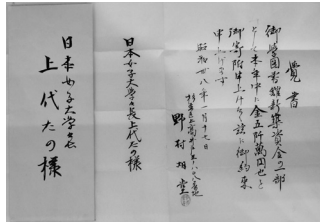 覺書
御學園書館新築資金の一部
として本年中に金五阡萬円也を
御寄附申上げる事を茲に御約束
申上げます
昭和卅八年 月十七日
野村胡堂
日本女子大学々長上代たの様
日本女子大学々長
上代たの様